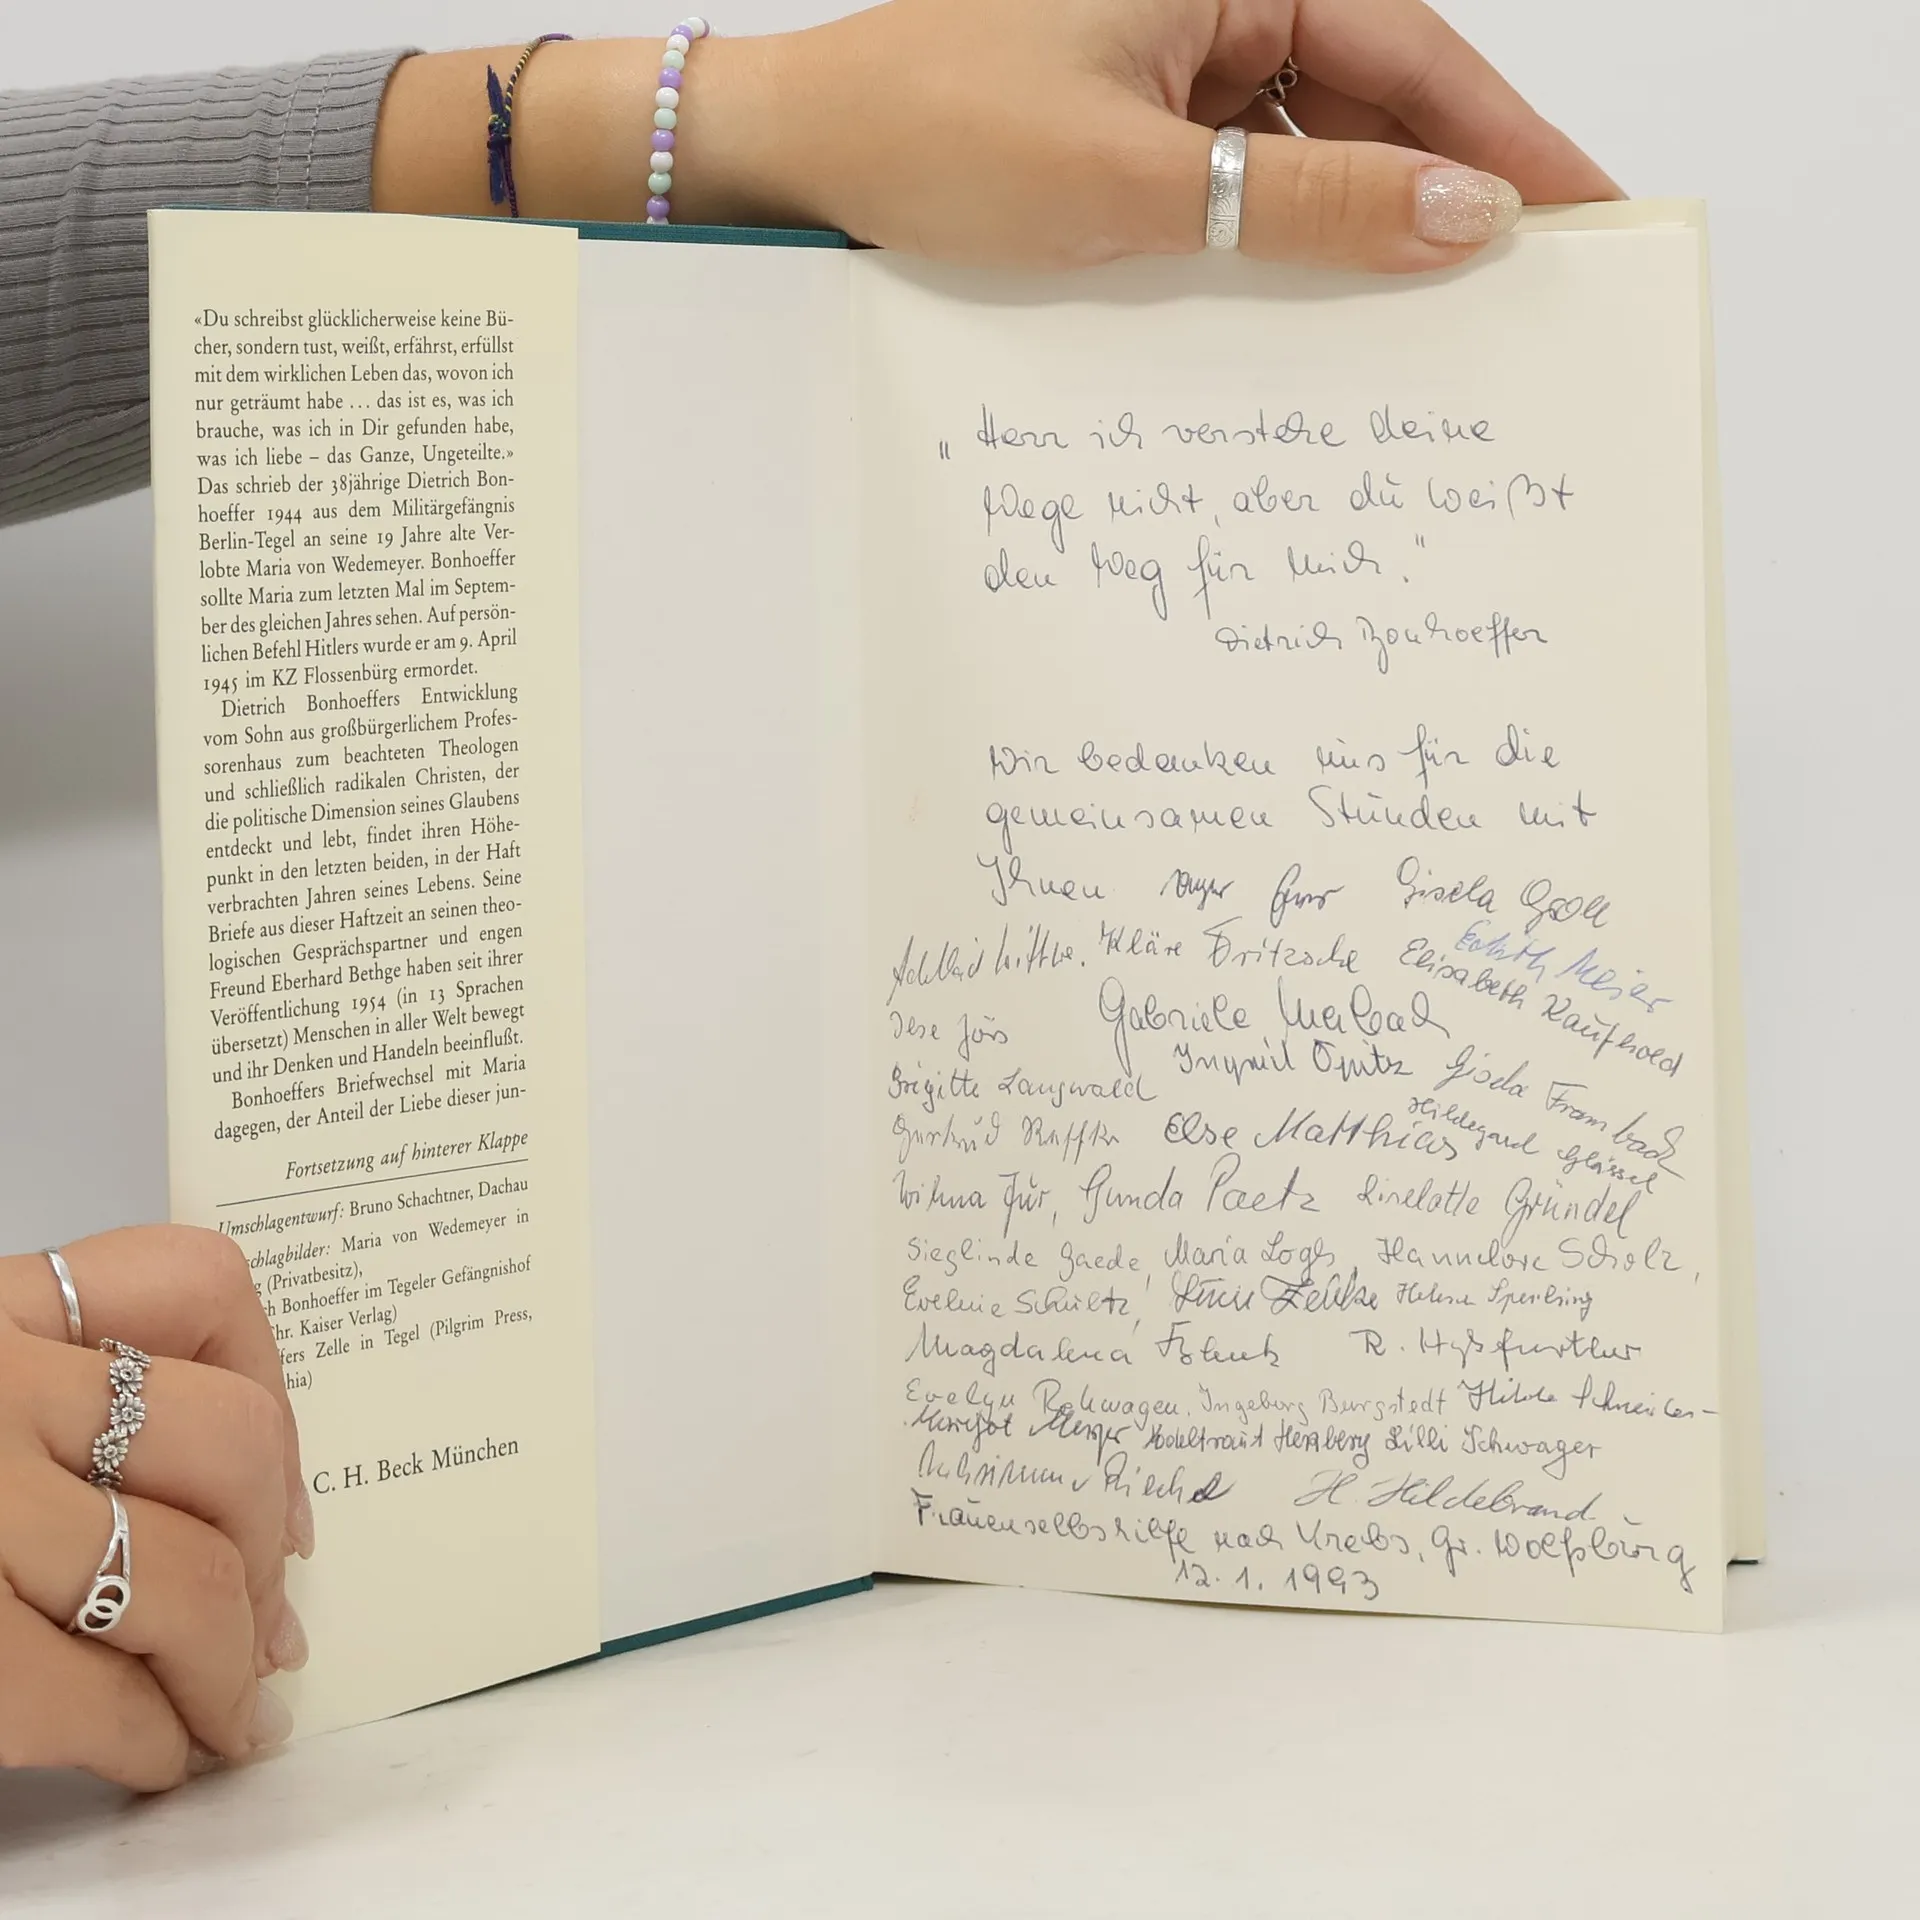 «Du schreibst glücklicherweise keine Bü-
cher, sondern tust, weißt, erfährst, erfüllst
mit dem wirklichen Leben das, wovon ich
nur geträumt habe ... das ist es, was ich
brauche, was ich in Dir gefunden habe,
was ich liebe – das Ganze, Ungeteilte.»
Das schrieb der 38jährige Dietrich Bon-
hoeffer 1944 aus dem Militärgefängnis
Berlin-Tegel an seine 19 Jahre alte Ver-
lobte Maria von Wedemeyer. Bonhoeffer
sollte Maria zum letzten Mal im Septem-
ber des gleichen Jahres sehen. Auf persön-
lichen Befehl Hitlers wurde er am 9. April
1945 im KZ Flossenbürg ermordet.
Dietrich Bonhoeffers Entwicklung
vom Sohn aus großbürgerlichem Profes-
sorenhaus zum beachteten Theologen
und schließlich radikalen Christen, der
die politische Dimension seines Glaubens
entdeckt und lebt, findet ihren Höhe-
punkt in den letzten beiden, in der Haft
verbrachten Jahren seines Lebens. Seine
Briefe aus dieser Haftzeit an seinen theo-
logischen Gesprächspartner und engen
Freund Eberhard Bethge haben seit ihrer
Veröffentlichung 1954 (in 13 Sprachen
übersetzt) Menschen in aller Welt bewegt
und ihr Denken und Handeln beeinflußt.
Bonhoeffers Briefwechsel mit Maria
dagegen, der Anteil der Liebe dieser jun-
Fortsetzung auf hinterer Klappe
Umschlagentwurf: Bruno Schachtner, Dachau
schlagbilder: Maria von Wedemeyer in
g (Privatbesitz),
h Bonhoeffer im Tegeler Gefängnishof
hr. Kaiser Verlag)
fers Zelle in Tegel (Pilgrim Press,
hia)
C. H. Beck München
"Herr ich verstehe deine
Wege nicht, aber du weißt
den Weg für mich."
Dietrich Bonhoeffer
Wir bedanken uns für die
gemeinsamen Stunden mit
Ihnen Gisela
Edith Meier
Kläre Fritzsche Elisabeth Kaufhold
Gabriele
Ingrid Opitz Gisela Frambach
Brigitte Langwald
Hildegard Glässel
Gertrud Else Matthias
Gunda Paetz Liselotte Gründel
Sieglinde Gaede, Maria Hannelore Scholz,
Eveline Schultz, Helena Sperling
Magdalena R.
Evelyn Rehwagen, Ingeborg Burgstedt Hilde Schneider
Margot Adeltraut Herzberg Lilli Schwager
H. Hildebrand
Frauenselbsthilfe nach Krebs, Gr. Wolfsburg
12.1.1993